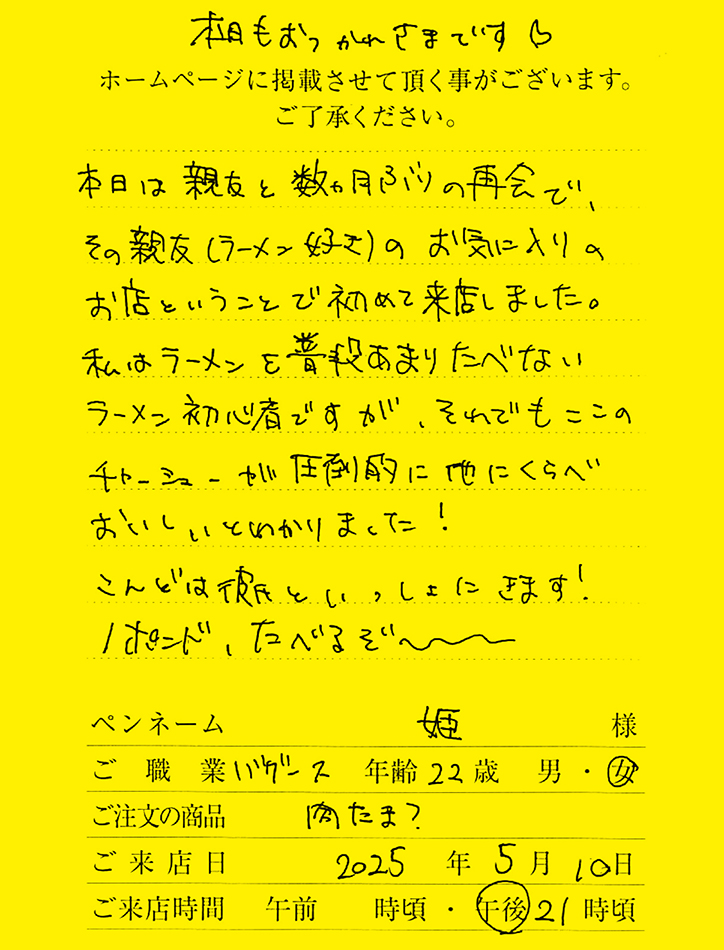 本日もおつかれさまです♡
ホームページに掲載させて頂く事がございます。
ご了承ください。
本日は親友と数ヵ月ぶりの再会で、
その親友(ラーメン好き)のお気に入りの
お店ということで初めて来店しました。
私はラーメンを普段あまりたべない
ラーメン初心者ですが、それでもここの
チャーシューが圧倒的に他にくらべ
おいしいとわかりました!
こんどは彼氏といっしょにきます!
1ポンド、たべるぞ〜〜〜
ペンネーム 姫 様
ご職業 バグース 年齢 22歳 男・女
ご注文の商品 肉たま?
ご来店日 2025年 5月 10日
ご来店時間 午前 時頃・午後 21時頃